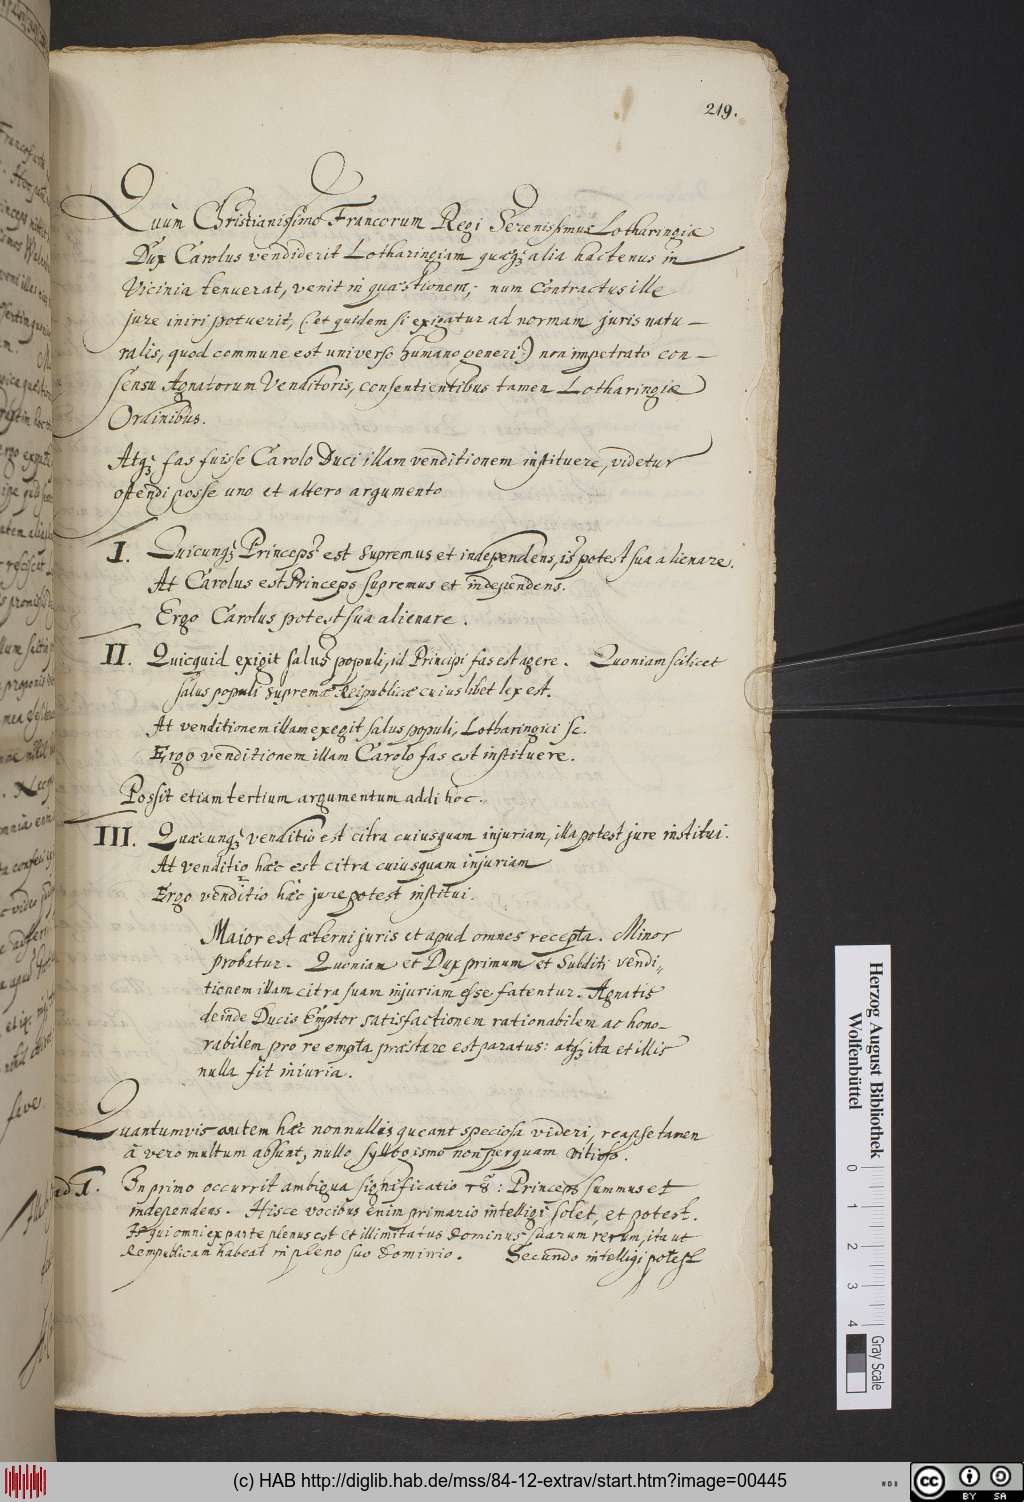 219.
Quùm Christianissimo Francorum Regi Serenissimus Lotharingiæ
Dux Carolus vendiderit Lotharingiam quæq; alia hactenus in
Vicinia tenuerat, venit in quæstionem; num contractus ille
jure iniri potuerit, (: et quidem si exigatur ad normam juris natu-
ralis, quod commune est universo humano generi :) non impetrato con-
sensu Agnatorum Venditoris, consentientibus tamen Lotharingiæ
Ordinibus.
Atq; fas fuisse Carolo Duci illam venditionem instituere, videtur
ostendi posse uno et altero argumento
I. Quicunq; Princeps est supremus et independens, is potest sua alienare.
At Carolus est Princeps supremus et independens.
Ergo Carolus potest sua alienare.
II. Quicquid exigit salus populi, id Principi fas est agere. Quoniam scilicet
salus populi suprema Reipublicæ cuiuslibet lex est.
At venditionem illam exegit salus populi, Lotharingici sc.
Ergo venditionem illam Carolo fas est instituere.
Possit etiam tertium argumentum addi hoc.
III. Quæcunq; venditio est citra cuiusquam injuriam, illa potest jure institui.
At venditio hæc est citra cuiusquam injuriam
Ergo venditio hæc jure potest institui.
Maior est æterni juris et apud omnes recepta. Minor
probatur. Quoniam et Dux primum et Subditi vendi„
tionem illam citra suam injuriam esse fatentur. Agnatis
deinde Ducis Emptor satisfactionem rationabilem ac hono-
rabilem pro re empta præstare est paratus: atq; ita et illis
nulla fit iniuria.
Quantumvis autem hæc nonnullis queant speciosa videri, reapse tamen
à vero multum absunt, nullo syllogismo non perquam vitioso.
ad I. In primo occurrit ambigua significatio : Princeps summus et
independens. Hisce vocibus enim primario intelligi solet, et potest.
Is qui omni ex parte plenus est et illimitatus Dominus suarum rerum, ita ut
Rempublicam habeat in pleno suo dominio. Secundo intelligi potest
Herzog August Bibliothek
Wolfenbüttel
0 1 2 3 4
Gray Scale
(c) HAB http://diglib.hab.de/mss/84-12-extrav/start.htm?image=00445
cc BY SA